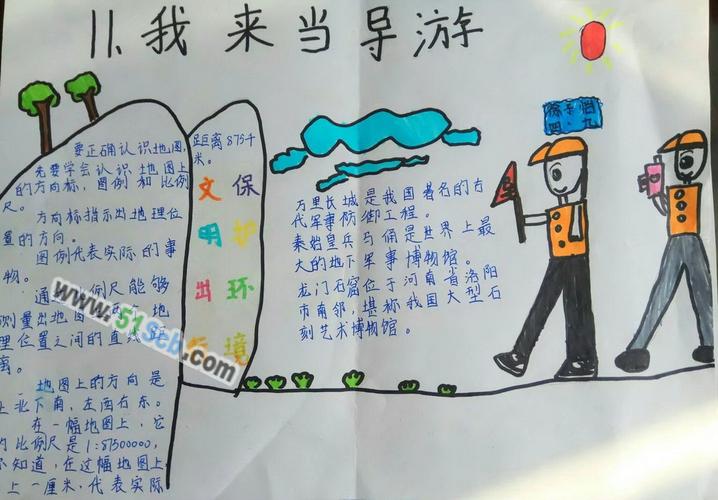 11.我来当导游
徐
四.九
要正确认识地图,
先要学会认识地图上
的方向标,图例和比例
尺。
方向标指示出地理位
置的方向。
图例代表实际的事
物。
通 例尺能够
测量出地图 地
理位置之间的直线
离。
地图上的方向是
上北下南,左西右东。
在一幅地图上,它
的比例尺是1:87500000,
不知道,在这幅地图上
上一厘米,代表实际
距离875千
米。
文明出行
保护环境
万里长城是我国著名的古
代军事防御工程。
秦始皇兵马俑是世界上最
大的地下军事博物馆。
龙门石窟位于河南省洛阳
市南郊,堪称我国大型石
刻艺术博物馆。
www.51Seb.com